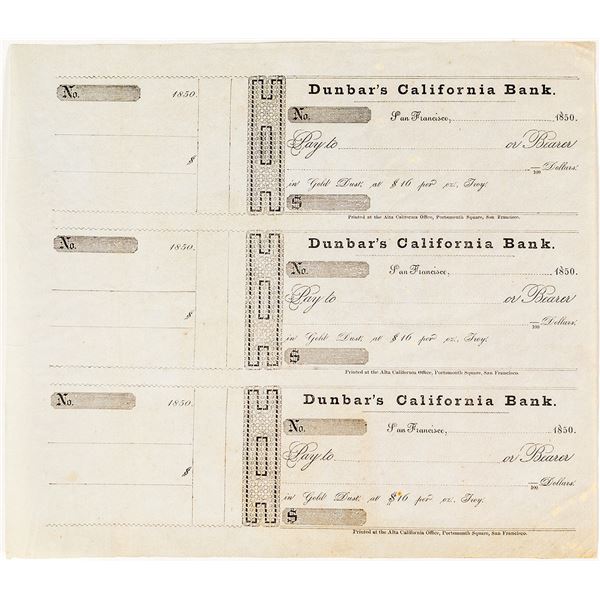 No. 1850.
$
Dunbar's California Bank.
No. San Francisco, 1850.
Pay to or Bearer
/100 Dollars.
in Gold Dust, at $16 per oz, Troy.
$
Printed at the Alta California Office, Portsmouth Square, San Francisco.
No. 1850.
$
Dunbar's California Bank.
No. San Francisco, 1850.
Pay to or Bearer
/100 Dollars.
in Gold Dust, at $16 per oz, Troy.
$
Printed at the Alta California Office, Portsmouth Square, San Francisco.
No. 1850.
$
Dunbar's California Bank.
No. San Francisco, 1850.
Pay to or Bearer
/100 Dollars.
in Gold Dust, at $16 per oz, Troy.
$
Printed at the Alta California Office, Portsmouth Square, San Francisco.